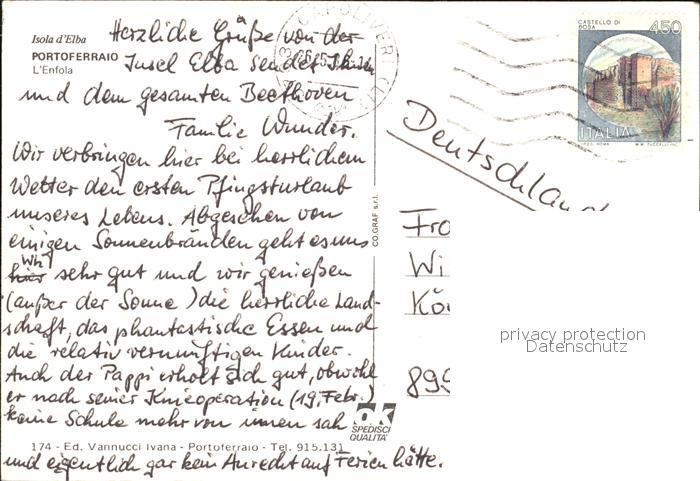 Isola d'Elba
PORTOFERRAIO
L'Enfola
Herzliche Grüße von der
Insel Elba sendet Ihnen
und dem gesamten Beethoven
Familie Wunder.
Wir verbringen hier bei herrlichem
Wetter den ersten Pfingsturlaub
unseres Lebens. Abgesehen von
einigen Sonnenbränden geht es uns
sehr gut und wir genießen
(außer der Sonne) die herrliche Land-
schaft, das phantastische Essen und
die relativ vernünftigen Kinder.
Auch der Pappi erholt sich gut, obwohl
er nach seiner Knieoperation (19. Febr.)
keine Schule mehr von innen sah
und eigentlich gar kein Anrecht auf Ferien hätte.
174 - Ed. Vannucci Ivana - Portoferraio - Tel. 915.131
CO.GRAF s.r.l.
ok
SPEDISCI
QUALITÀ
CASTELLO DI
ROSA
450
ITALIA
I.P.Z.S. ROMA
Deutschland
Fra
Wi
Kö
899
privacy protection
Datenschutz